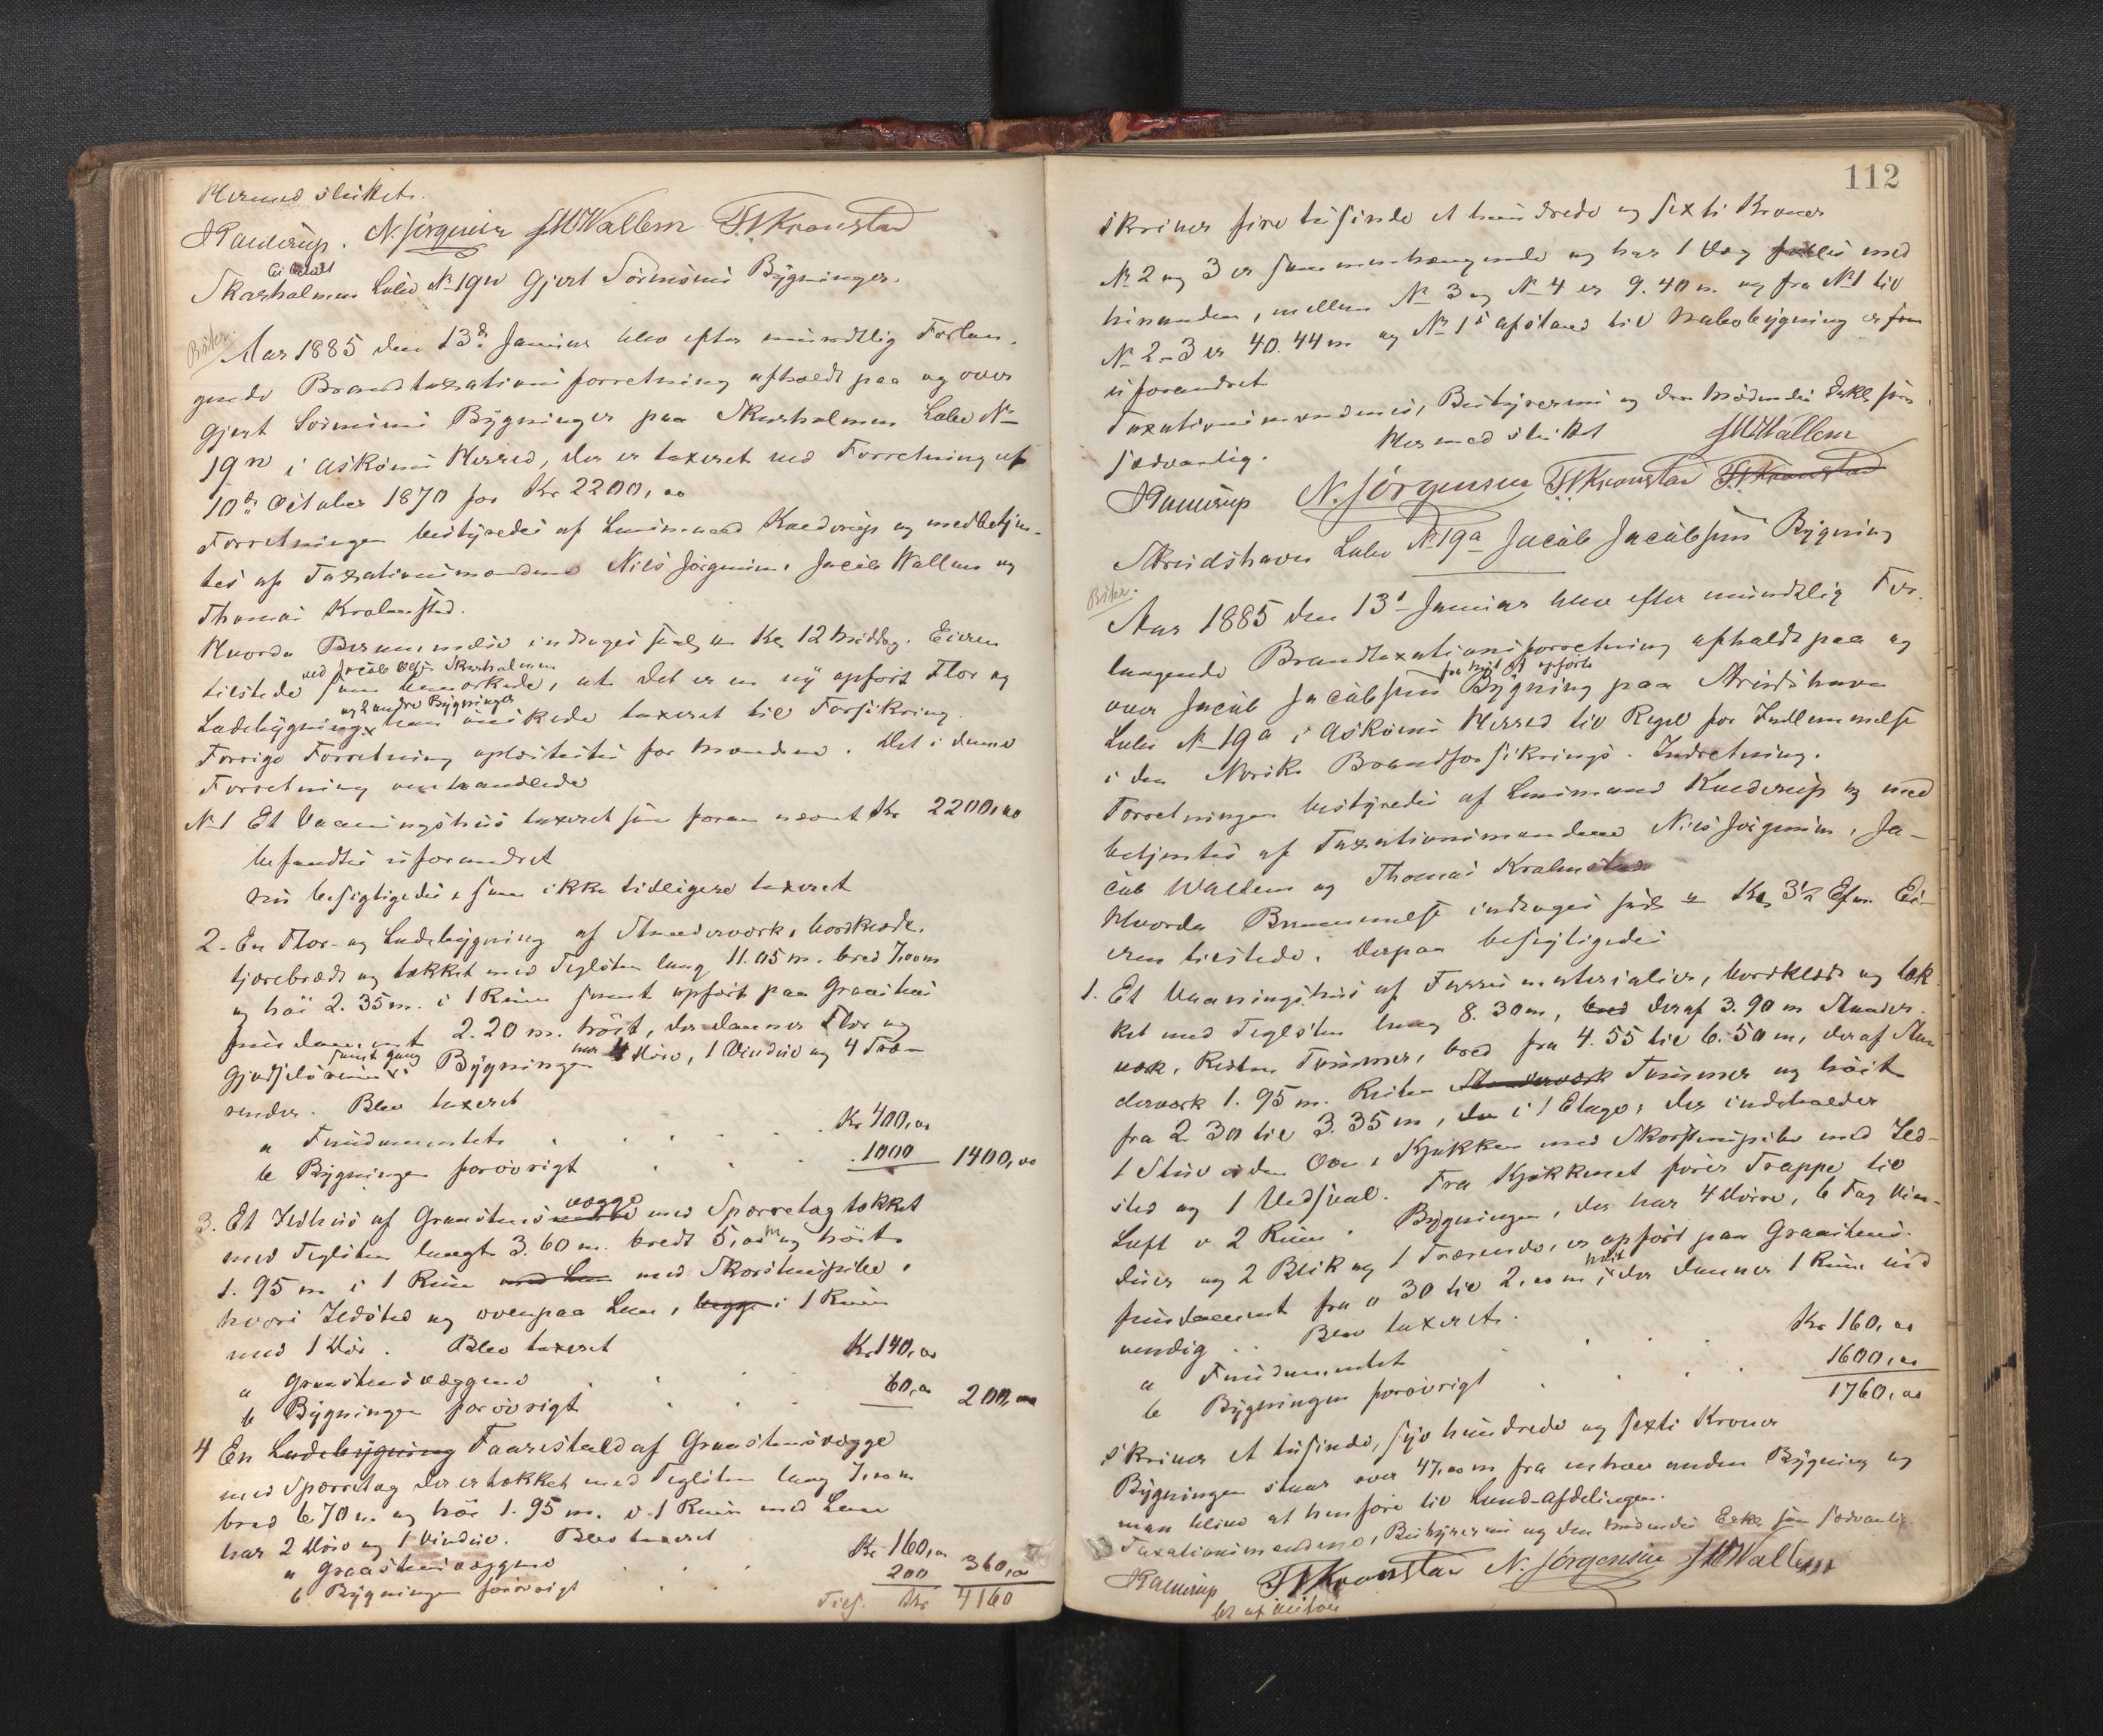 Hermed sluttet.
JKaederup. N. Jörgensen JMWallem T. Kronstad
Skarholmen Løbe № 19n Gjert Sörensens Bygninger.
Aar 1885 den 13de Januar blev efter mundtlig Forlan-
gende Brandtaxationsforretning afholdt paa og over
Gjert Sörensens Bygninger paa Skarholmen Løbe №
19n i Asköens Herred, der er taxeret ved Forretning af
10de October 1870 for Kr 2200,00
Forretningen bestyredes af Lensmand Kaederup og medbetjen-
tes af Taxationsmændene Nils Jörgensen, Jacob Wallem og
Thomas Kralmstad.
Hvorda Berammelse indtoges saal. Kl. 12 Middag. Eieren
ved Jacob Olsen Skarholmen
tilstede som bemærkede, at det er en ny opført Flor og
og 2 andre Bygninger
Ladebygning x han önskede taxeret til Forsikring.
Forrige Forretning oplæstes for Mændene. Det i denne
Forretning omhandlede
№ 1 Et Vaaningshus taxeret som foran nævnt Kr 2200,00
befandtes uforandret
nu besigtigedes, som ikke tidligere taxeret
2. En Flor- og Ladebygning af Standerværk, bordklædt,
tjærebrædt og tækket med Teglsten lang 11.05 m. bred 7,00 m
og höi 2.35 m. i 1 Rum samt opfört paa Graastens
fundament 2.20 m. höit, der danner Flor og
samt gang
Gjödselsrum x. Bygningen har 4 Döre, 1 Vindue og 4 Træ-
render. Blev taxeret
a Fundamentet . . . . Kr 400,00
b Bygningen forövrigt . . . 1000 1400,00
3. Et Ildhus af Graastens vægge med Sparretag tækket
med Teglsten langt 3.60 m. bredt 5,00 m og höit
1.95 m i 1 Rum med Lem med Skorstenspibe,
hvori Ildsted og ovenpaa Lem, begge i 1 Rum
med 1 Dör. Blev taxeret
a Graastensvæggene . . . Kr 140,00
b Bygningen forövrigt . . . 60,00 200,00
4 En Ladebygning Faarestald af Graastensvægge
med Sparretag der er tækket med Teglsten lang 7,00 m
bred 6 70 m. og höi 1.95 m. i 1 Rum med Lem
har 2 Döre og 1 Vindue. Blev taxeret
a Graastensvæggene . . Kr 160,00
b Bygningen forövrigt . . 200 360,00
Tils. Kr 4160
112
skriver fire tusinde et hundrede og sexti Kroner
№ 2 og 3 er sammenhængende og har 1 Væg fælles med
hinanden, mellem № 3 og № 4 er 9.40 m. og fra № 1 til
№ 2-3 er 40.44 m og № 1s afstand til Nabobygning er som
uforandret
Taxationsmændenes, Bestyrerens og den mödendes Erkl. som
sædvanlig. Hermed sluttet JMWallem
JKaederup N. Jörgensen T. Kronstad T. Kronstad
Strudshavn Løbe № 19a Jacob Jacobsens Bygning
Aar 1885 den 13de Januar blev efter mundtlig For-
langende Brandtaxationsforretning afholdt paa og
over Jacob Jacobsens Bygning paa Strudshavn
Løbe № 19a i Asköens Herred til Regel for Indlemmelse
i den Norske Brandforsikrings-Indretning.
Forretningen bestyredes af Lensmand Kaederup og med
betjentes af Taxationsmændene Nils Jörgensen, Ja-
cob Wallem og Thomas Kralmstad
Hvorda Berammelse indtoges saal. Kl. 3½ Efm. Ei-
eren tilstede. Derpaa besigtigedes
1. Et Vaaningshus af Furrumaterialier, bordklædt og tæk
ket med Teglsten lang 8.30 m, bred deraf 3.90 m Stander-
værk, Resten Tömmer, bred fra 4.55 til 6.50 m, deraf Stan
derværk 1.95 m. Resten Standerværk Tömmer og höit
fra 2.30 til 3.35 m, da i 1 Etage, der indeholder
1 Stue uden Ovn, Kjökken med Skorstenspibe med Ild-
sted og 1 Vedsval. Fra Kjökkenet förer Trappe til
Loft i 2 Rum. Bygningen, der har 4 Döre, 6 Fag Vin-
duer og 2 Blik og 1 Trærende, er opfört paa Graastens-
fundament fra 0 30 til 2,00 m höit, der danner 1 Rum ind
vendig. Blev taxeret.
a Fundamentet . . . Kr 160,00
b Bygningen forövrigt . . . 1600,00
1760,00
skriver et tusinde, syv hundrede og sexti Kroner
Bygningen staar over 47,00 m fra enhver anden Bygning og
man bliver at henføre til Land-Afdelingen.
Taxationsmændenes, Bestyrerens og den mödendes Erkl. som sædvanlig.
JKaederup T. Kronstad N. Jörgensen JMWallem